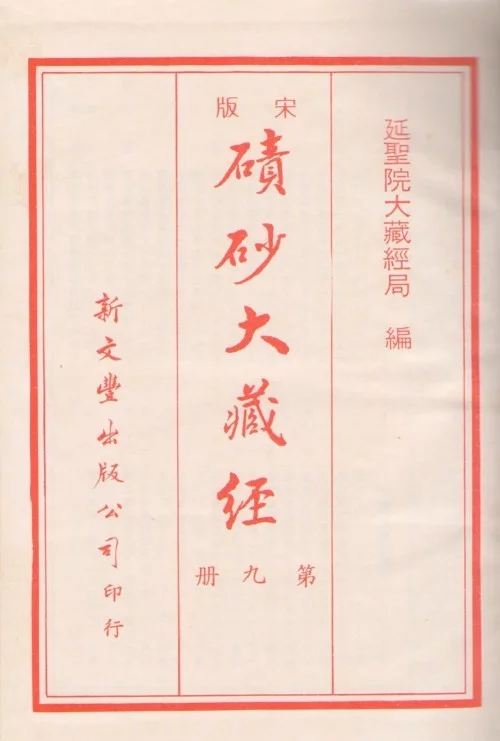 延聖院大藏經局 編
宋版
磧砂大藏经
第九册
新文豐出版公司印行